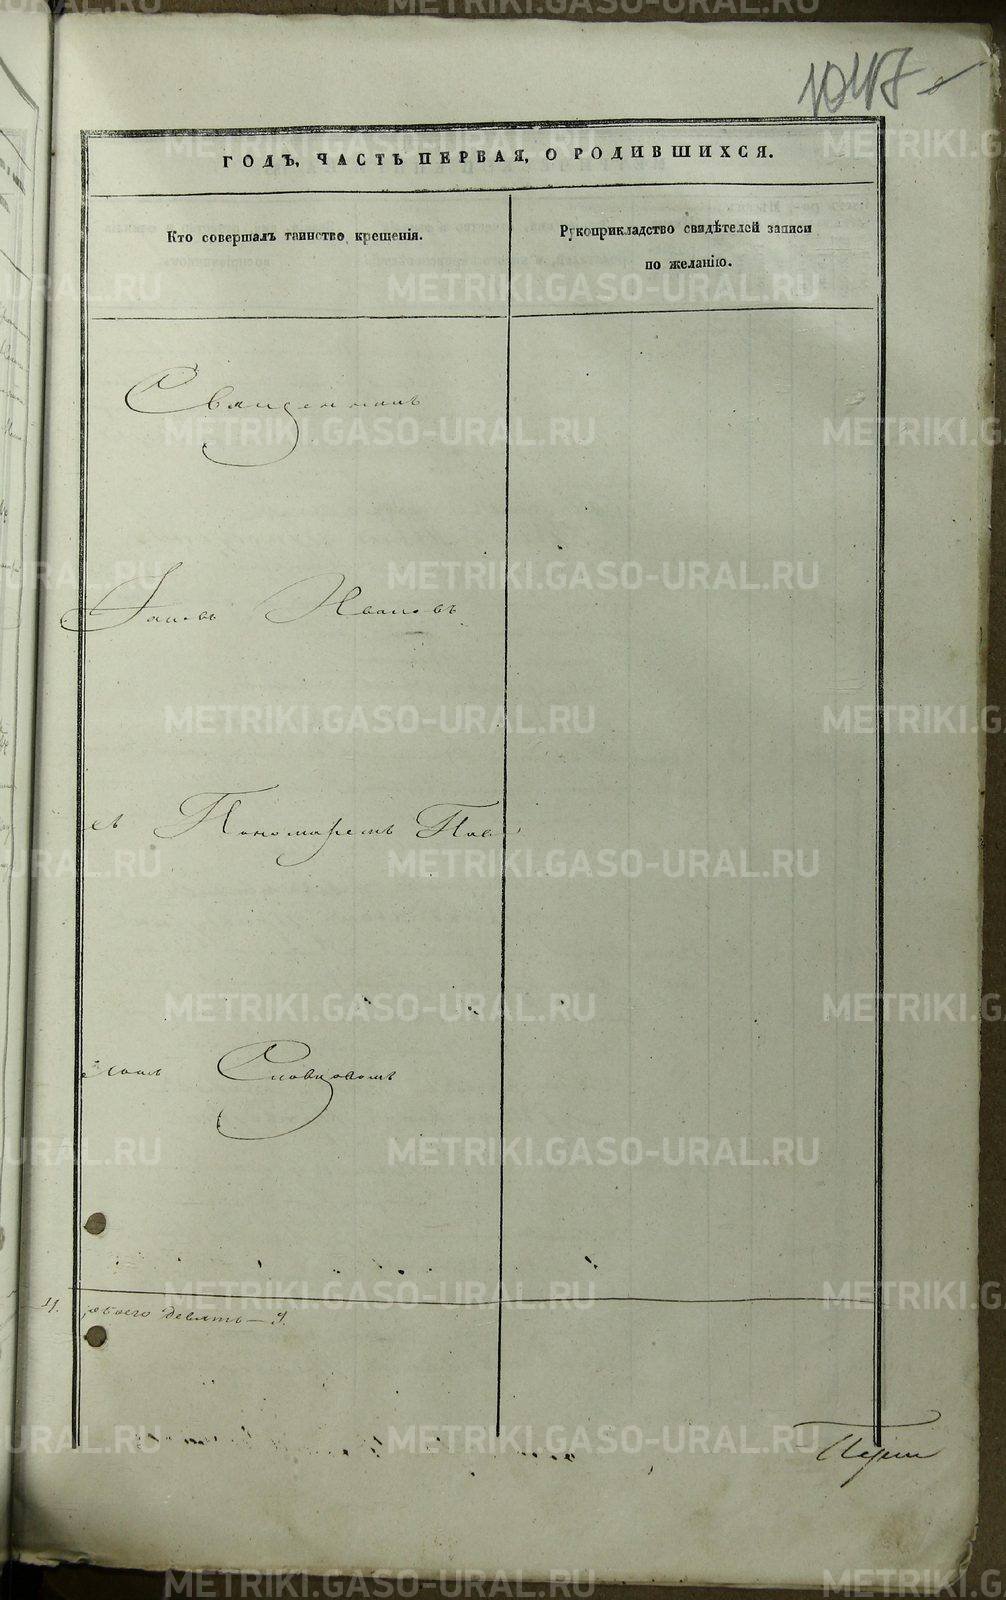 1047
ГОДЪ, ЧАСТЬ ПЕРВАЯ, О РОДИВШИХСЯ.
Кто совершалъ таинство крещенія.
Рукоприкладство свидѣтелей записи
по желанію.
Священникъ
Іаковъ Ивановъ
съ Пономаремъ Пав
Словцовымъ
обоего девять — 9.
METRIKI.GASO-URAL.RU